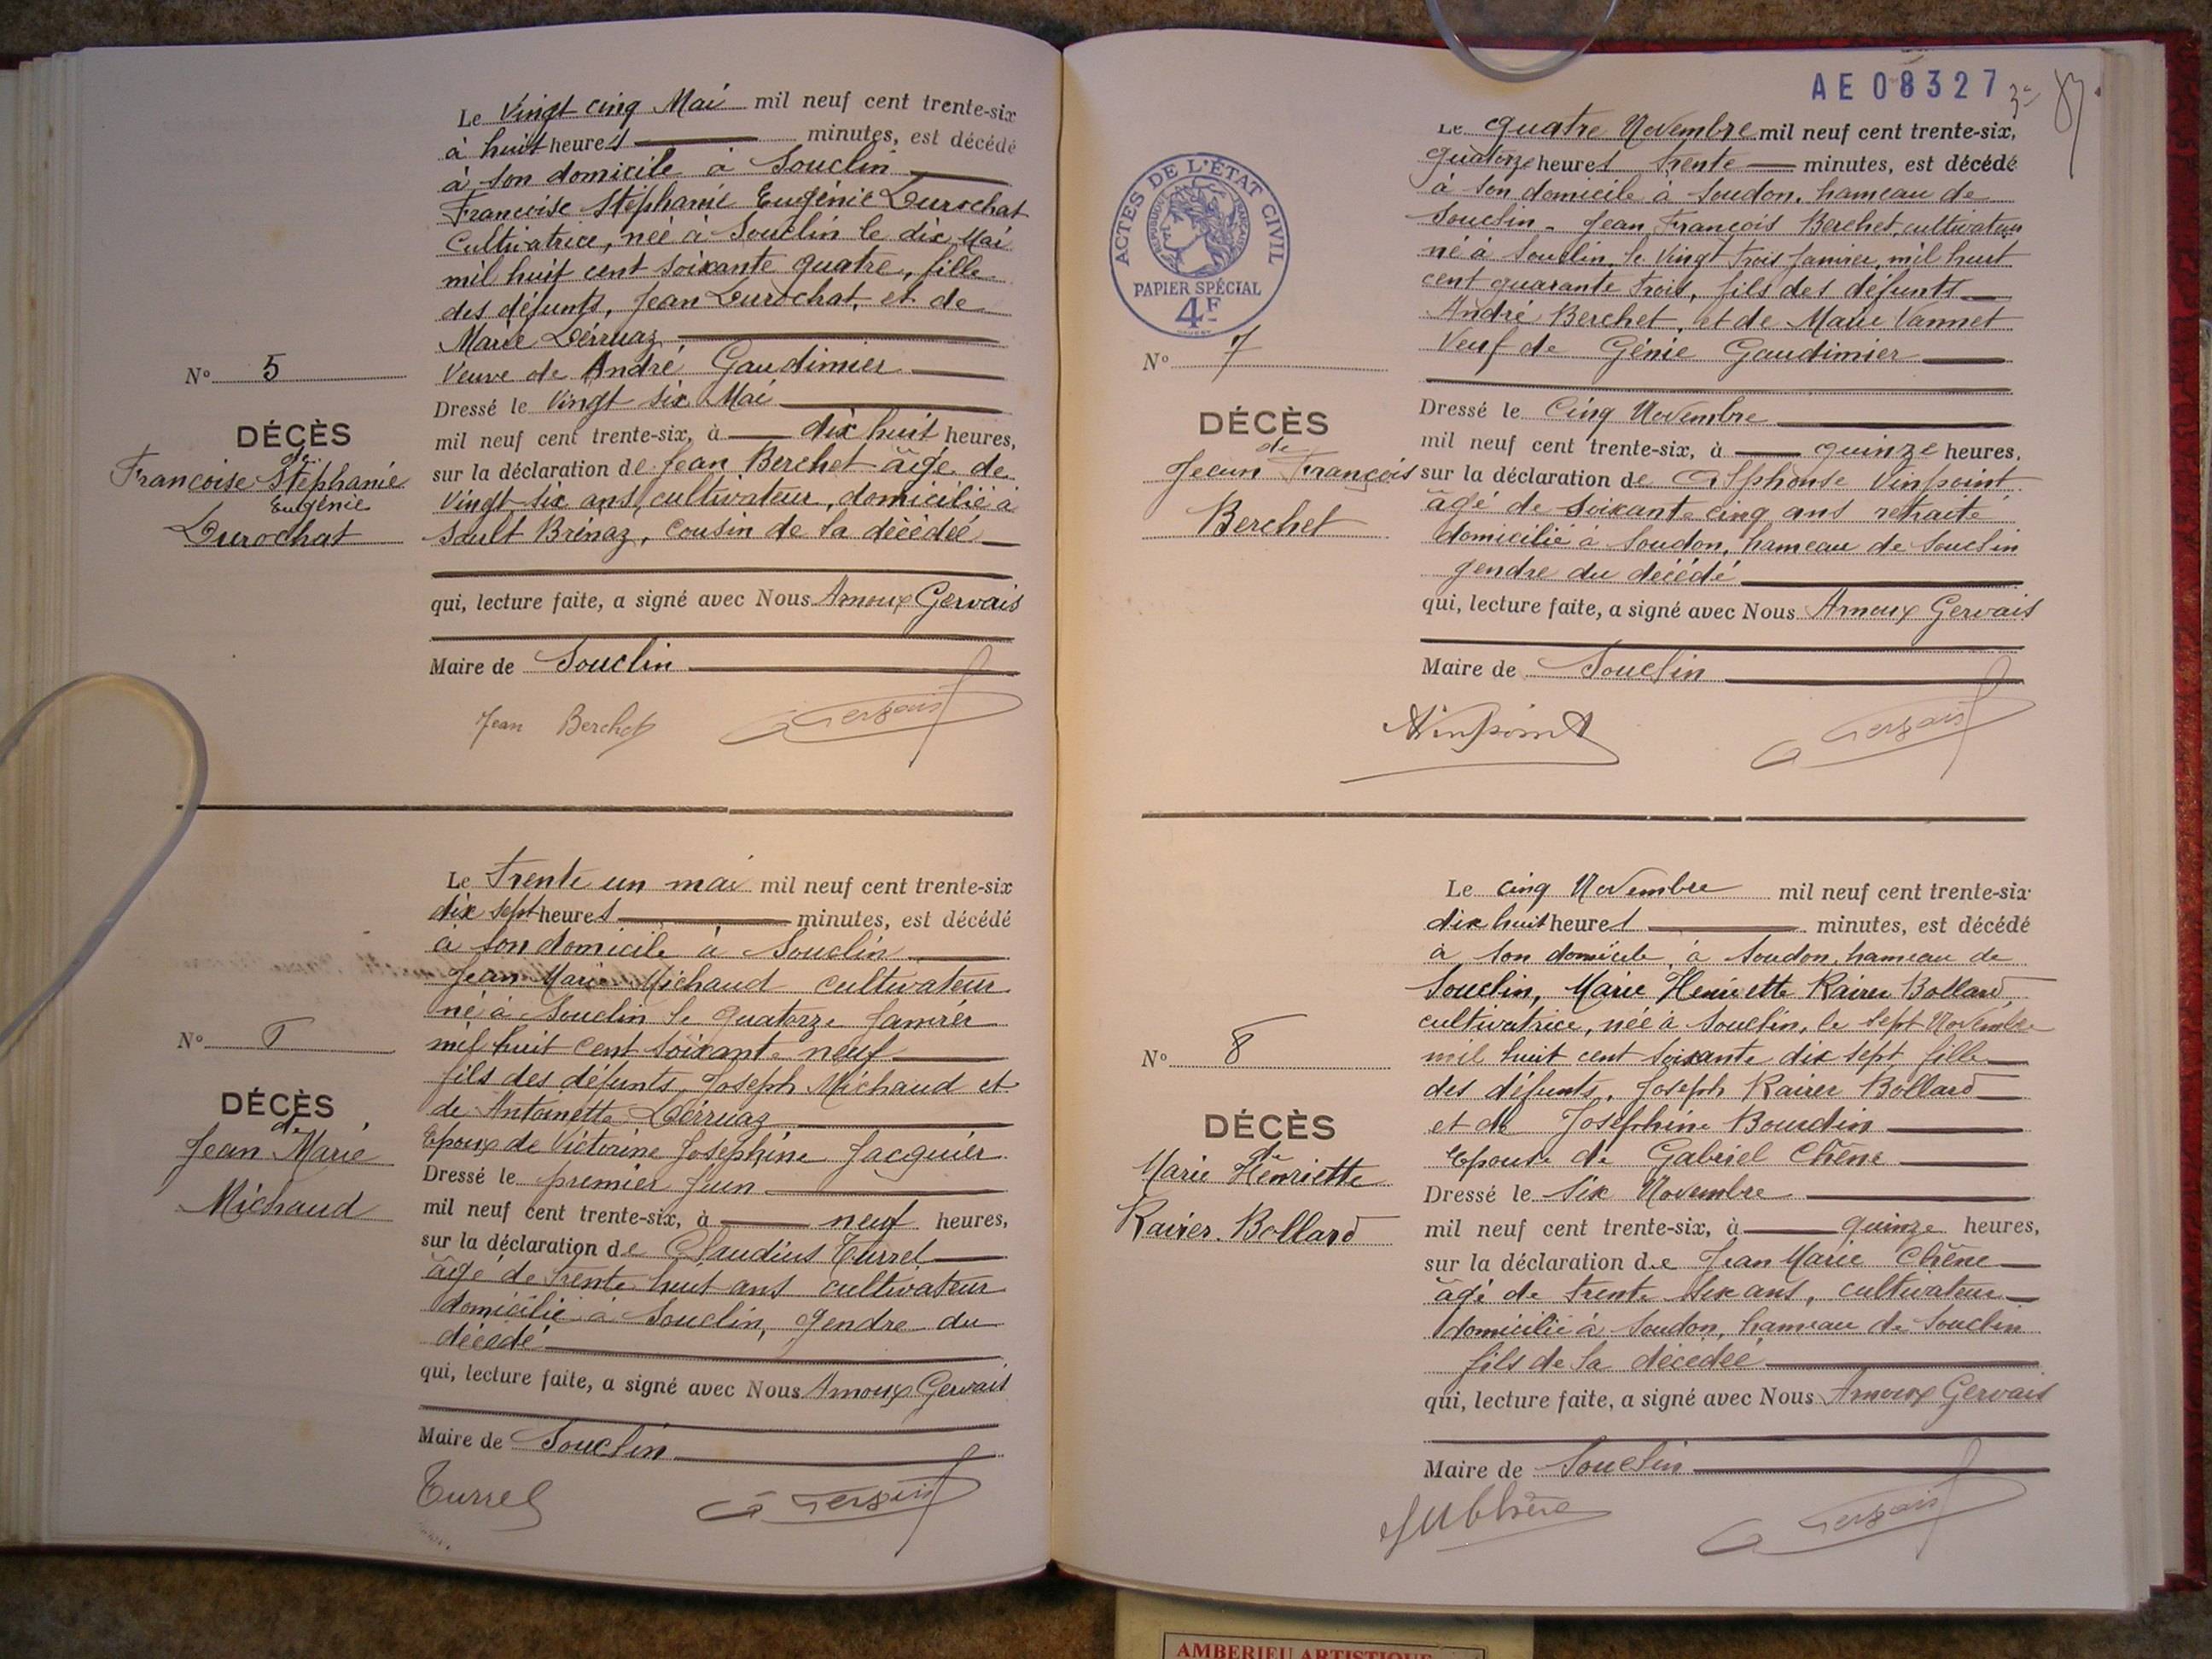 Le Vingt cinq Mai mil neuf cent trente-six
à huit heures minutes, est décédé
à son domicile à Souclin
Francoise Stéphanie Eugénie Durochat
Cultivatrice, neé à Souclin le dix Mai
mil huit cent soixante quatre, fille
des défunts, Jean Durochat, et de
Marie Dérruaz
Veuve de André Gaudimier
Dressé le Vingt six Mai
mil neuf cent trente-six, à dix huit heures,
sur la déclaration de Jean Berchet âgé de
Vingt six ans, cultivateur, domicilié à
Sault Brénaz, Cousin de la décédeé
qui, lecture faite, a signé avec Nous Arnoux Gervais
Maire de Souclin
Jean Berchet
G Gervais
N° 5
DÉCÈS
de
Francoise Stéphanie
Eugénie
Durochat
Le Trente un mai mil neuf cent trente-six
dix sept heures minutes, est décédé
à son domicile à Souclin
Jean Marie Michaud cultivateur
né à Souclin le quatorze Janvier
mil huit cent soixante neuf
fils des défunts, Joseph Michaud et
de Antoinette Dérruaz
Epoux de Victorine Joséphine Jacquier
Dressé le premier Juin
mil neuf cent trente-six, à neuf heures,
sur la déclaration de Claudius Turrel
âgé de trente huit ans cultivateur
domicilié à Souclin, gendre du
décédé
qui, lecture faite, a signé avec Nous Arnoux Gervais
Maire de Souclin
Turrel
G Gervais
N°
DÉCÈS
de
Jean Marie
Michaud
AE 08327
83
ACTES DE L'ÉTAT CIVIL
RÉPUBLIQUE FRANÇAISE
PAPIER SPÉCIAL
4F
Le quatre Novembre mil neuf cent trente-six,
quatorze heures trente minutes, est décédé
à son domicile à Soudon, hameau de
Souclin. Jean François Berchet, cultivateur
né à Souclin, le Vingt trois Janvier, mil huit
cent quarante trois, fils des défunts
André Berchet, et de Marie Vannet
Veuf de Génie Gaudimier
Dressé le Cinq Novembre
mil neuf cent trente-six, à quinze heures,
sur la déclaration de Alphonse Vinpoint
âgé de soixante cinq ans retraité
domicilié à Soudon, hameau de Souclin
gendre du décédé
qui, lecture faite, a signé avec Nous Arnoux Gervais
Maire de Souclin
Vinpoint
G Gervais
N° 7
DÉCÈS
de
Jean François
Berchet
Le cinq Novembre mil neuf cent trente-six
dix huit heures minutes, est décédé
à son domicile, à Soudon, hameau de
Souclin, Marie Henriette Rairer Bollard,
cultivatrice, née à Souclin, le sept Novembre
mil huit cent soixante dix sept, fille
des défunts, Joseph Rairer Bollard
et de Joséphine Bourdin
Epouse de Gabriel Chêne
Dressé le six Novembre
mil neuf cent trente-six, à quinze heures,
sur la déclaration de Jean Marie Chêne
âgé de trente six ans, cultivateur
domicilié à Soudon, hameau de Souclin
fils de la décedeé
qui, lecture faite, a signé avec Nous Arnoux Gervais
Maire de Souclin
JM Chêne
G Gervais
N° 8
DÉCÈS
de
Marie Henriette
Rairer. Bollard
AMBERIEU ARTISTIQUE